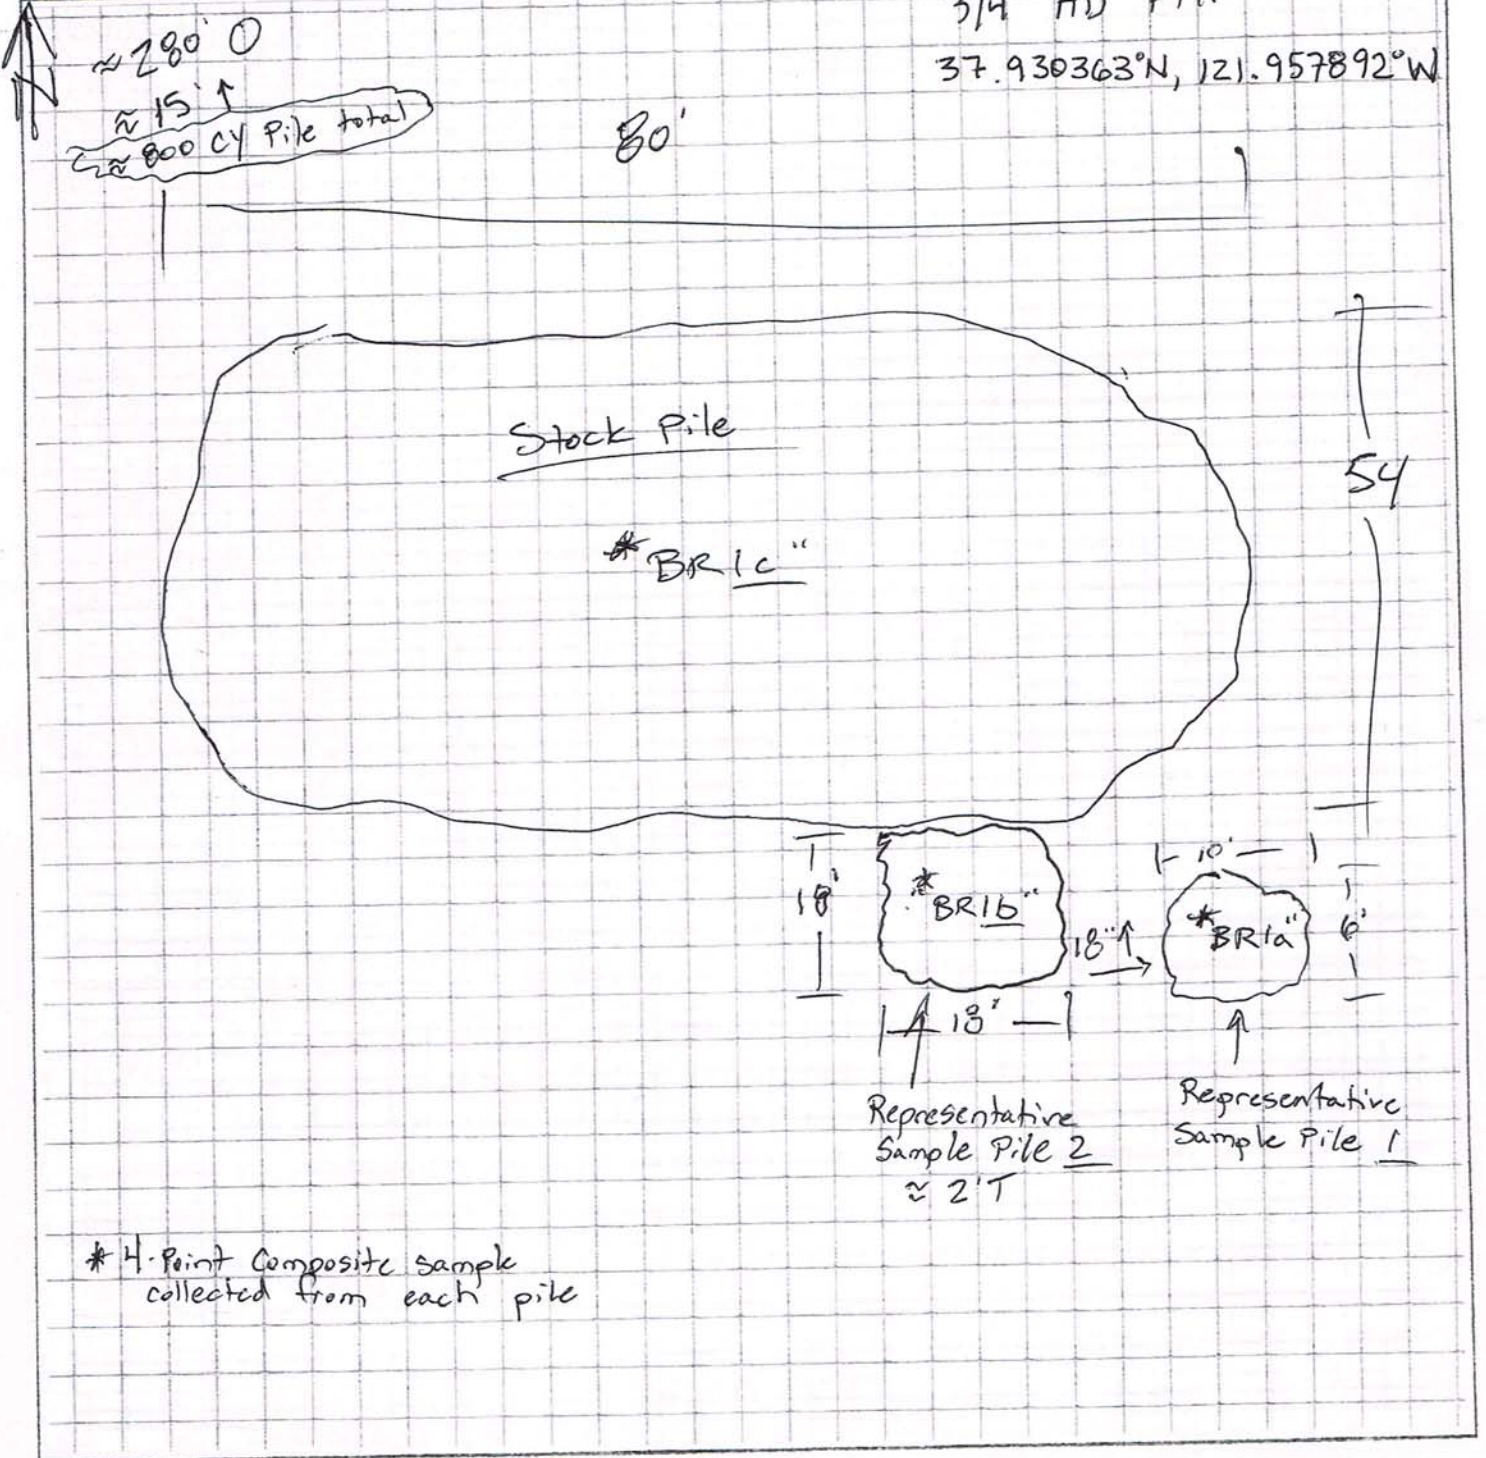 N
≈ 280' O
≈ 15' ↑
≈ 800 CY Pile total
3/4
37.930363°N, 121.957892°W
80'
Stock Pile
54
* BR1c"
18'
* BR1b"
18"↑
10'
* BR1a"
6'
18'
Representative
Sample Pile 2
≈ 2'T
Representative
Sample Pile 1
* 4-Point Composite sample
collected from each pile